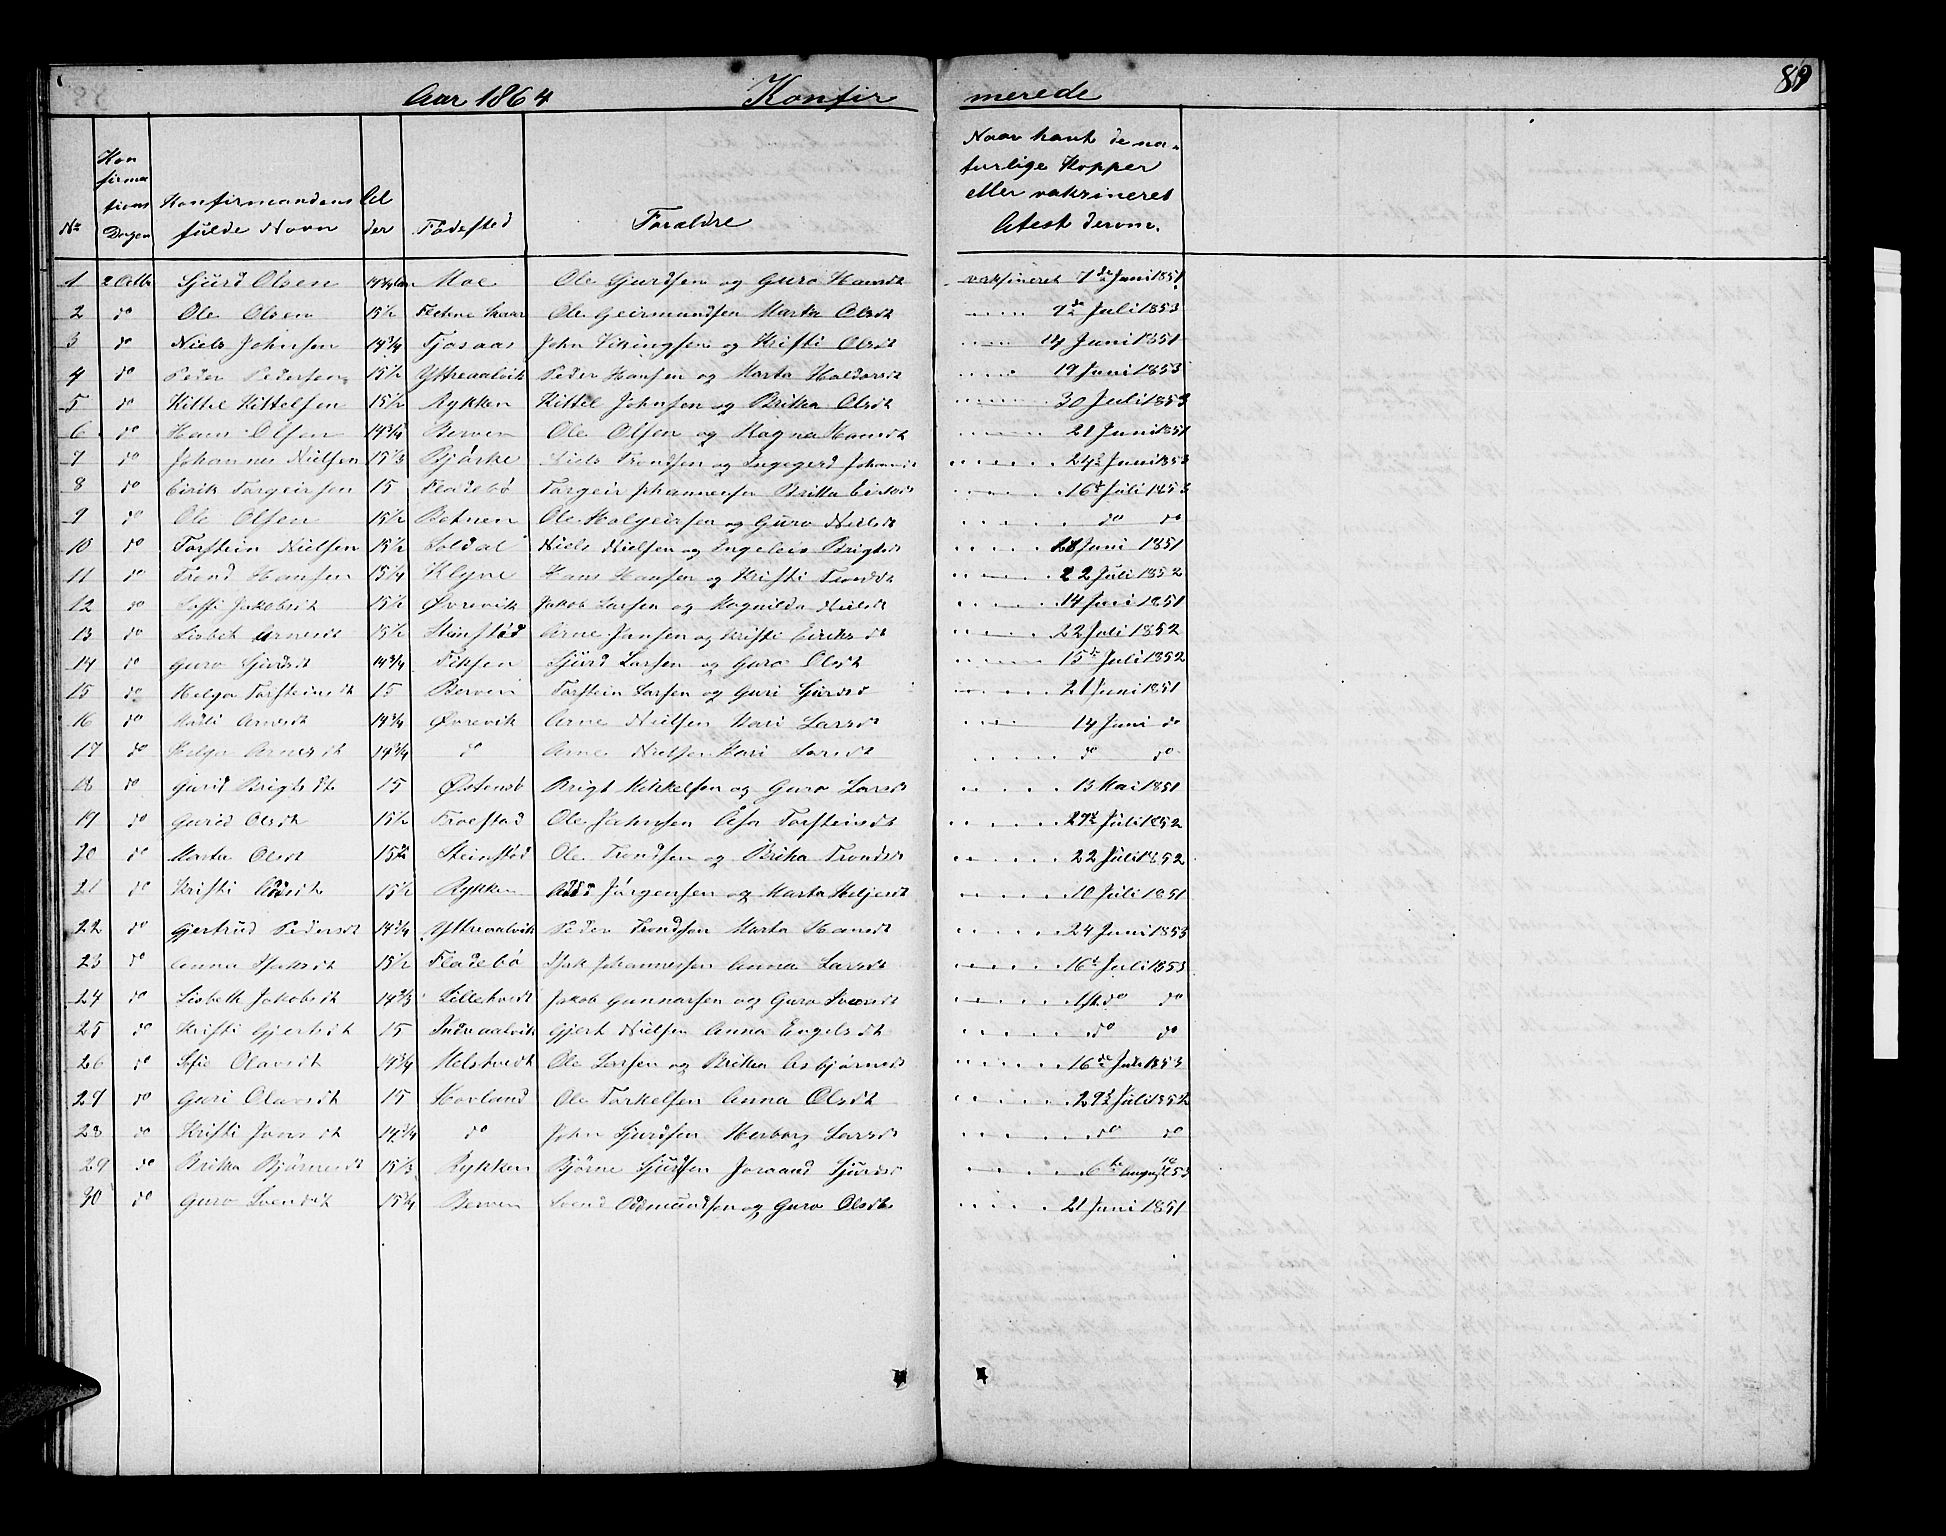 Aar 1864 Konfir merede 89
No Konfirmations Dagen Konfirmandens fulde Navn Alder Födested Forældre Naar havt de naturlige Kopper eller vaksineret Atest derom.
1 2 Oktb Sjúrd Olsen 14 3/4 Moe Ole Sjurdsen og Guro Hansdt vaksineret 7de Juni 1851
2 do Ole Olsen 15 1/2 Ole Geirmundsen Marta Olsdt 9de Juli 1853
3 do Niels Johnsen 14 3/4 Fjosaas John Vikingsen og Kristi Olsdt 14 Juni 1851
4 do Peder Pedersen 15 1/2 Yttreaalvik Peder Hansen og Marta Haldorsdt 19 Juni 1853
5 do Kittel Kittelsen 15 1/2 Rykken Kittel Johnsen og Britha Olsdt 30 Juli 1853
6 do Hans Olsen 14 3/4 Berven Ole Olsen og Ragna Hansdt 21 Juni 1851
7 do Johannes Nielsen 15 1/3 Bjørke Niels Trondsen og Ingegerd Johansdt 24de Juni 1853
8 do Eirik Torgeirsen 15 Fladebö Torgeir Johannessen Britha Eiriksdt 16de Júli 1853
9 do Ole Olsen 15 1/2 Botnen Ole Holgeirsen og Guro Nielsdt do do
10 do Torstein Nielsen 15 1/2 Soldal Niels Nielsen og Engeleis Brigtsdt 21 Juni 1851
11 do Trond Hansen 15 1/4 Klyve Hans Hansen og Kristi Trondsdt 22 Júli 1852
12 do Jakobsdt 15 1/2 Øvrevik Jakob Larsen og Ragnilda Nielsdt 14 Juni 1851
13 do Lisbet Arnesdt 15 1/2 Steinstöd Arne Jansen og Kristi Eiriksdt 22 Juli 1852
14 do Guro Sjurdsdt 14 3/4 Fiksen Sjúrd Larsen og Guro Olsdt 15de Juli 1852
15 do Helga Torsteinsdt 15 Berven Torstein Larsen og Guri Sjurdsd 21 Juni 1851
16 do Arnesdt 14 3/4 Øvrevik Arne Nielsen Kari Larsdt 14 Juni do
17 do Helga Arnesdt 14 3/4 do Arne Nielsen Kari Larsdt do do
18 do Gurid Brigtsdt 15 Østensö Brigt Mikkelsen og Guro Larsdt 13 Mai 1851
19 do Gurid Olsdt 15 1/2 Froestad Ole Johnsen Åsa Torsteinsdt 29de Júli 1852
20 do Marta Olsdt 15 Steinstöd Ole Trondsen og Britha Trondsdt 22 Júli 1852
21 do Kristi Oddsdt 15 1/2 Rykken Odd Jörgensen og Marta Heljesdt 10 Júli 1851
22 do Gjertrúd Pedersdt 14 3/4 Yttreaalvik Peder Trondsen Marta Hansdt 24 Juni 1853
23 do Anna Isaksdt 15 1/2 Fladebö Isak Johannessen Anna Larsdt 16de Juli 1853
24 do Lisbeth Jakobsdt 14 2/3 Lilletvedt Jakob Gunnarsen og Guro Iversdt 1ste do do
25 do Kristi Gjertsdt 15 Indreaalvik Gjert Nielsen Anna Engelsdt do do
26 do Sofie Olavsdt 14 3/4 Melstvedt Ole Larsen og Britha Asbjørnsdt 16de Juli 1853
27 do Guri Olavsdt 15 Hovland Ole Torkelsen Anna Olsdt 29de Júli 1852
28 do Kristi Jonsdt 14 3/4 do John Sjurdsen Herborg Larsdt do do
29 do Britha Bjørnesdt 15 1/3 Rykken Bjørne Sjúrdsen Joraand Sjúrdsd 6te August 1853
30 do Guro Svendsdt 15 3/4 Berven Svend Odmundsen og Guro Olsdt 21 Juni 1851